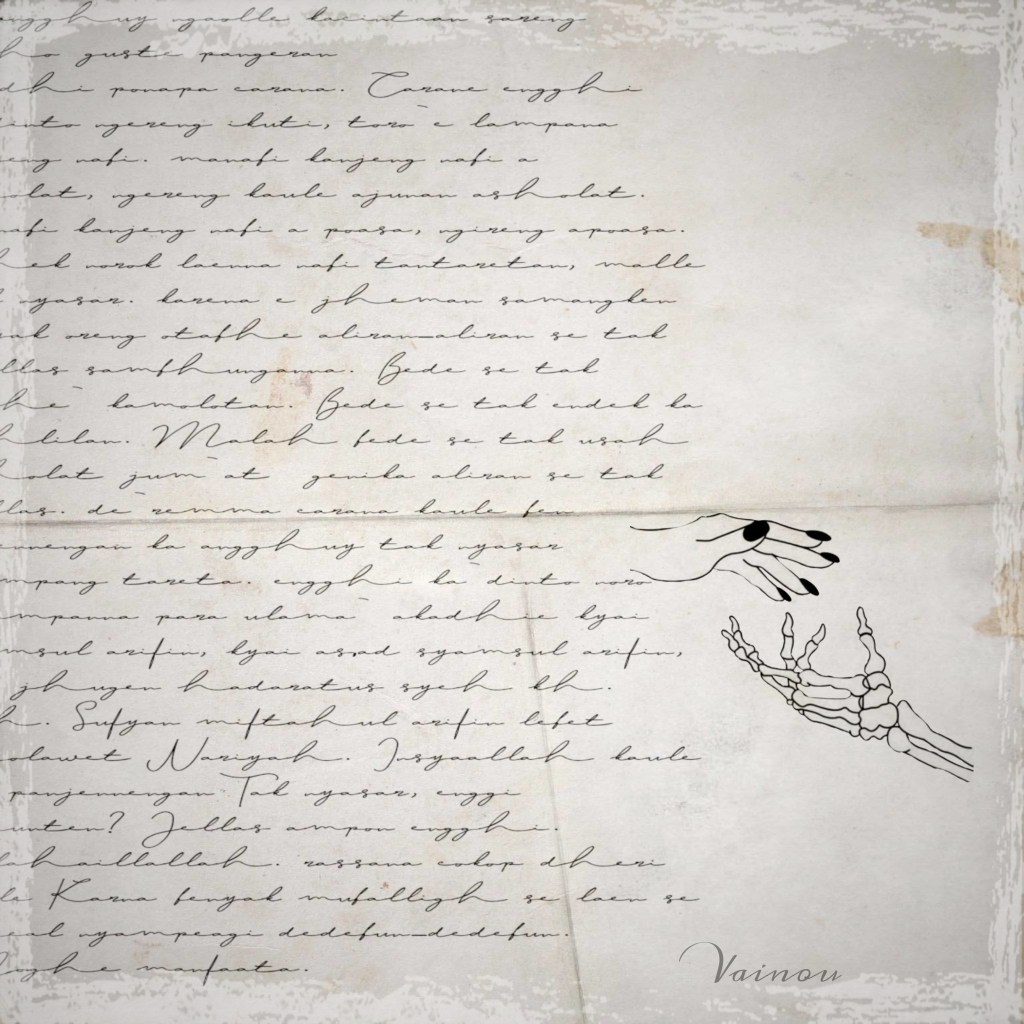 ngaolle kacintaan sareng
guste pangeran
ponapa carana. Carane engghi
ngereng ikuti, toro' e lampana
nafi. manafi kanjeng nafi a
ngereng kaule ajunan asholat.
kanjeng nafi a poasa, ngireng apoasa.
norok laenna nafi tantaretan, malle
nyasar. karena e jheman samangken
oreng otafhe aliran-aliran se tak
samfhunganna. Bede se tak
kamolotan. Bede se tak endek ka
Malah fede se tak usah
jum'at genika aliran se tak
de' remma carana kaule fen
ka angghuy tak nyasar
tareta. engghi ka' dinto noro'
para ulama' akadhie kyai
arifin, kyai as,ad syamsul arifin,
jhugen hadaratus syeh kh.
Sufyan miftahul arifin lefet
Nariyah. Insyaallah kaule
panjennengan Tak nyasar, enggi
Jellas ampon engghi.
rassana cokop dheri
Karna fenyak mufalligh se laen se
nyampeagi dedefun-dedefun.
manfaata.
Vainou